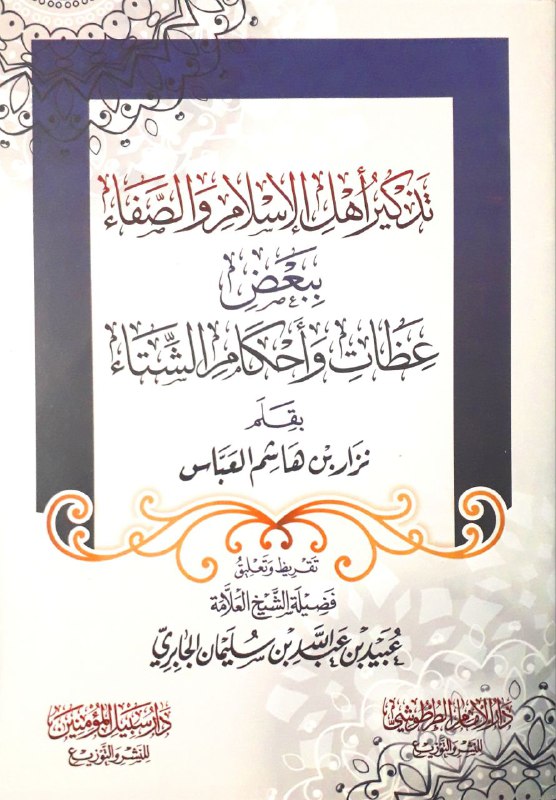 تَذْكِيرُ أَهْلِ الإِسْلَامِ وَالصَّفَاءِ
بِبَعْضِ
عِظَاتِ وَأَحْكَامِ الشِّتَاءِ
بِقَلَم
نزار بن هاشم العبَّاس
تقريظ وتعليقُ
فضيلة الشيخ العلَّامة
عُبيد بن عبد الله بن سُليمان الجابريّ
دار الإمام الطرطوشي
للنشر والتوزيع
دار سبيل المؤمنين
للنشر والتوزيع